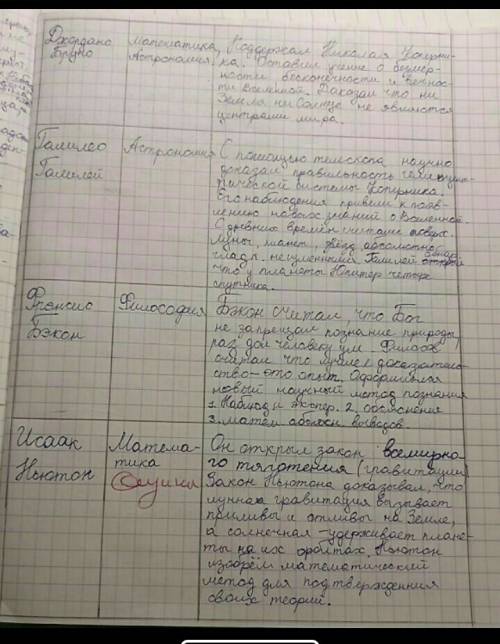 Джордано Математика, Поддержал Николая Коперни-
Бруно Астрономия. ка. Оставил учение о безмер-
ности бесконечности и вечнос-
ти Вселенной. Доказал что ни
Земля, ни Солнце не являются
центрами мира.
Галилео Астрономия С помощью телескопа научно
Галилей доказал правильность
тической системы Коперника.
Его наблюдения привели к появ-
лению новых знаний о Вселенной.
С древних времён считали поверх.
Луны, планет, звёзд абсолютно
гладк. неизменными. Галилей
что у планеты Юпитер четыре
спутника.
Френсис Философия Бэкон считал что Бог
Бэкон не запрещал познание природы,
раз дал человеку ум. Философ
считал что лучшее доказатель-
ство-это опыт. Оформил
новый научный метод познания
1. Наблюд и Экспер. 2. объяснения
3. матем выводов.
Исаак Матема- Он открыл закон всемирно-
Ньютон тика го тяготения (гравитации)
Физика Закон Ньютона доказывал, что
лунная гравитация вызывает
приливы и отливы на Земле,
а солнечная -удерживает плане-
ты на их орбитах. Ньютон
изобрёл математический
метод для подтверждения
своих теорий.